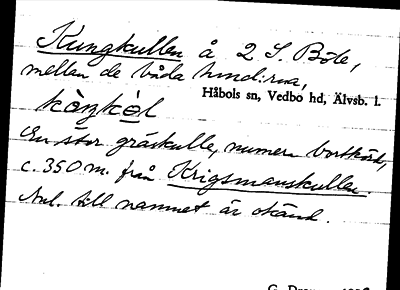 Kungkullen å 2 S. Böle,
mellan de båda hmd:rna,
Håbols sn, Vedbo hd, Älvsb. l.
En stor gråskulle, numera bortkörd,
c. 350 m. från Krigsmanskullen.
Anl. till namnet är okänd.